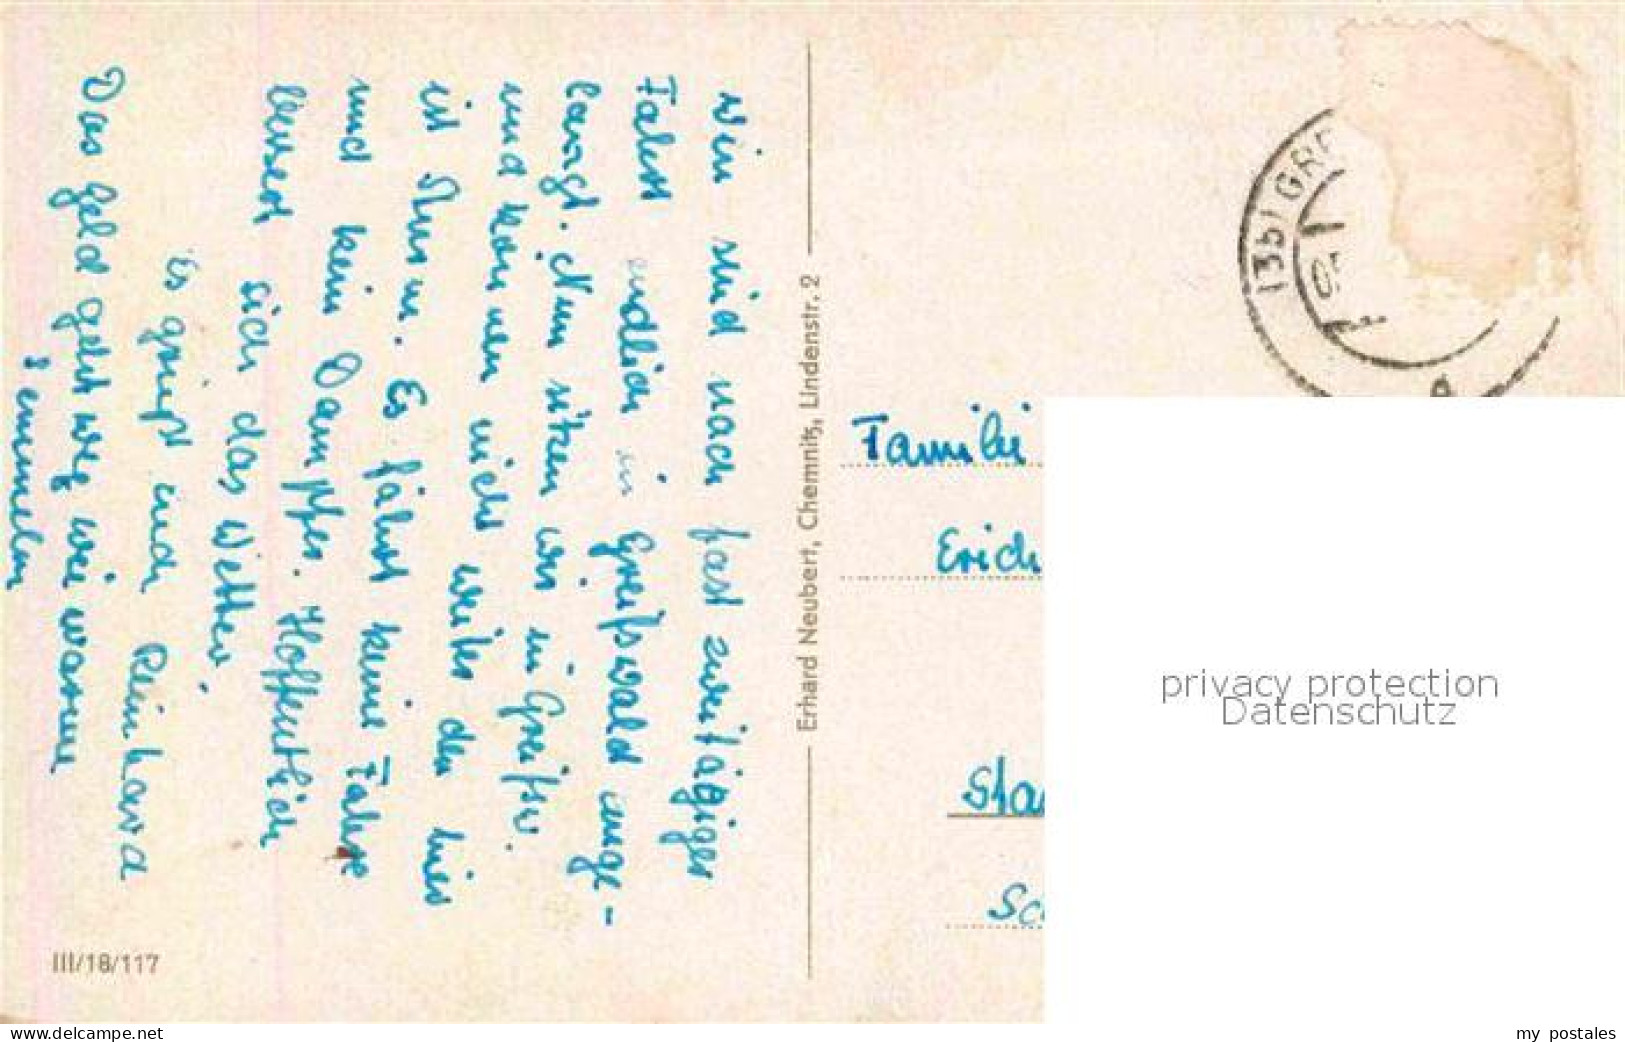 Wir sind nach fast zweitägiger
Fahrt endlich in Greifswald ange-
langt. Nun sitzen wir in Greifsw.
und können nicht weiter denn hier
ist Sturm. Es fährt keine Fähre
und kein Dampfer. Hoffentlich
bessert sich das Wetter.
Es grüßt euch Reinhard
Das Geld geht weg wie warme
Semmeln
III/18/117
Erhard Neubert, Chemnitz, Lindenstr. 2
(3b) GRE
Familie
Erich
privacy protection
Datenschutz
www.delcampe.net
my_postales